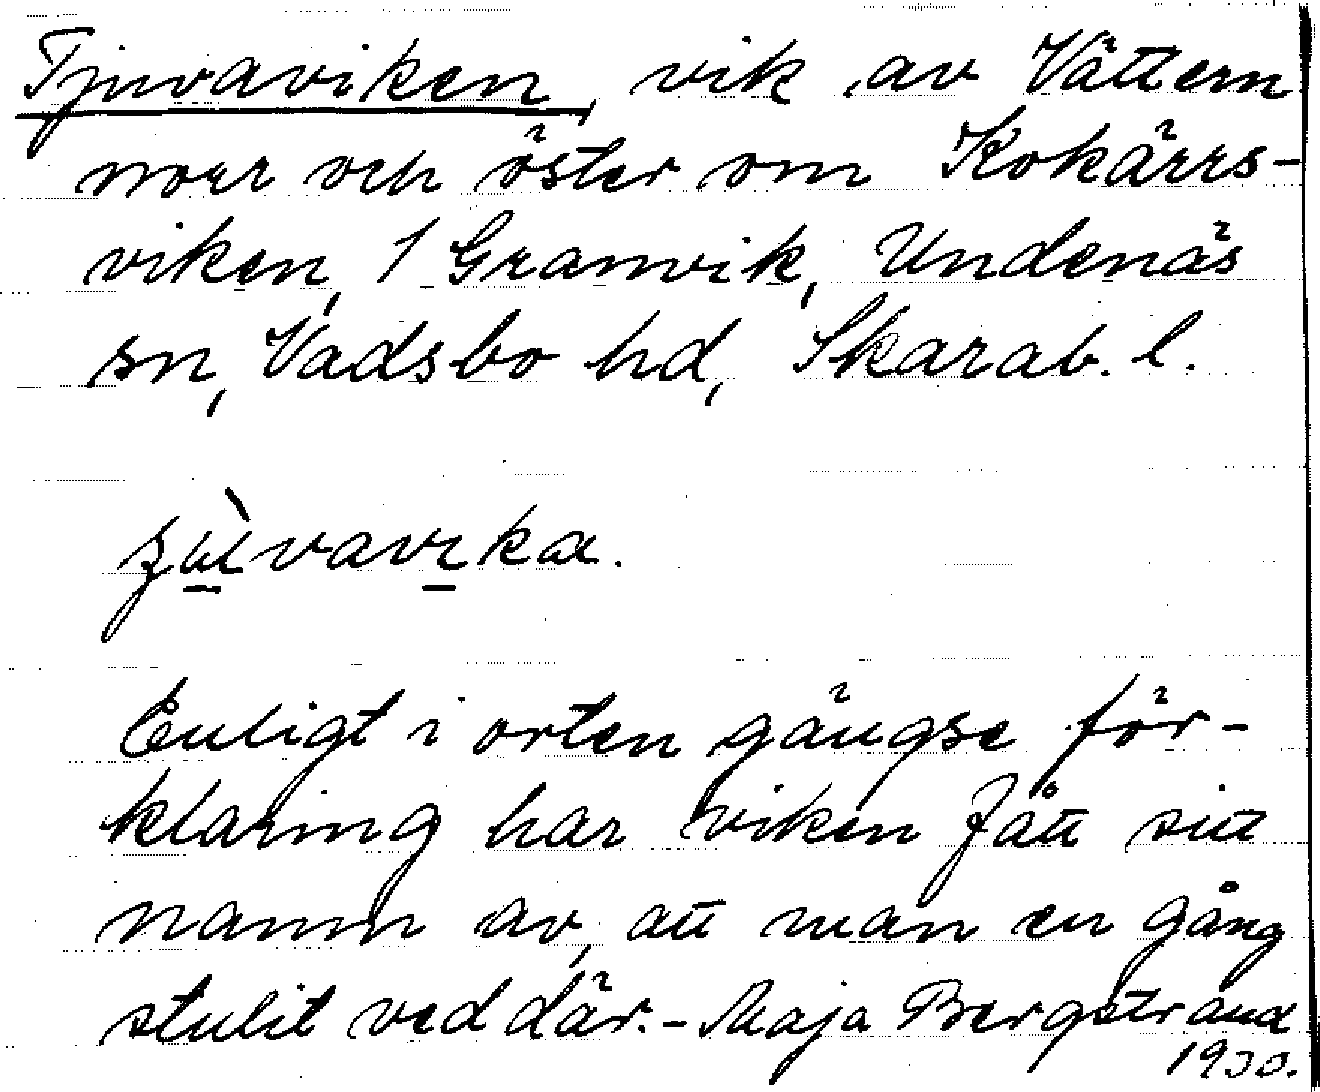 Tjuvaviken, vik av Vättern
norr och öster om Kokärrs-
viken, 1 Granvik, Undenäs
sn, Vadsbo hd, Skarab. l.
Enligt i orten gängse för-
klaring har viken fått sitt
namn av, att man en gång
stulit ved där. - Maja Bergstrand
1930.